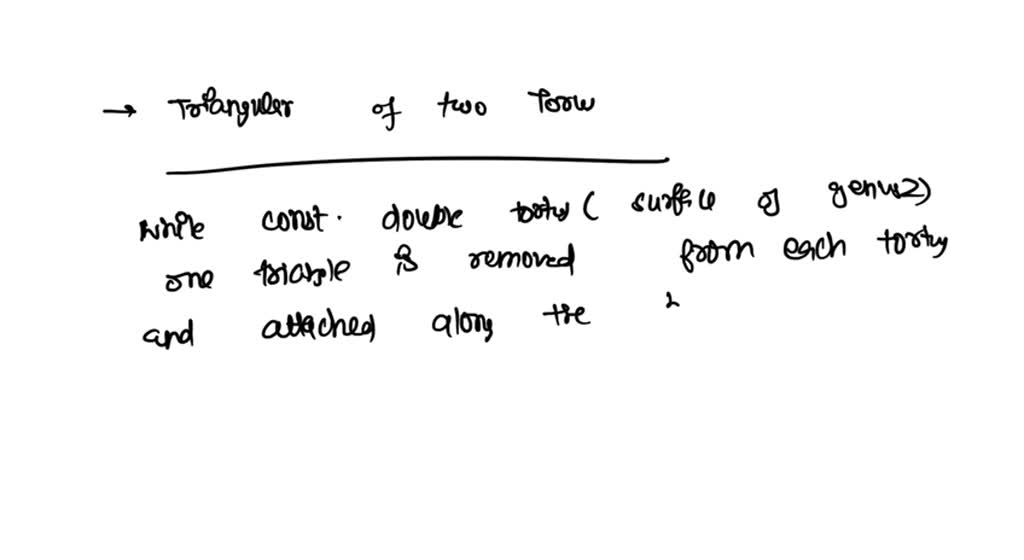 → Triangular of two Torus
while const. double torus ( surface of genus 2)
one triangle is removed from each torus
and attached along the